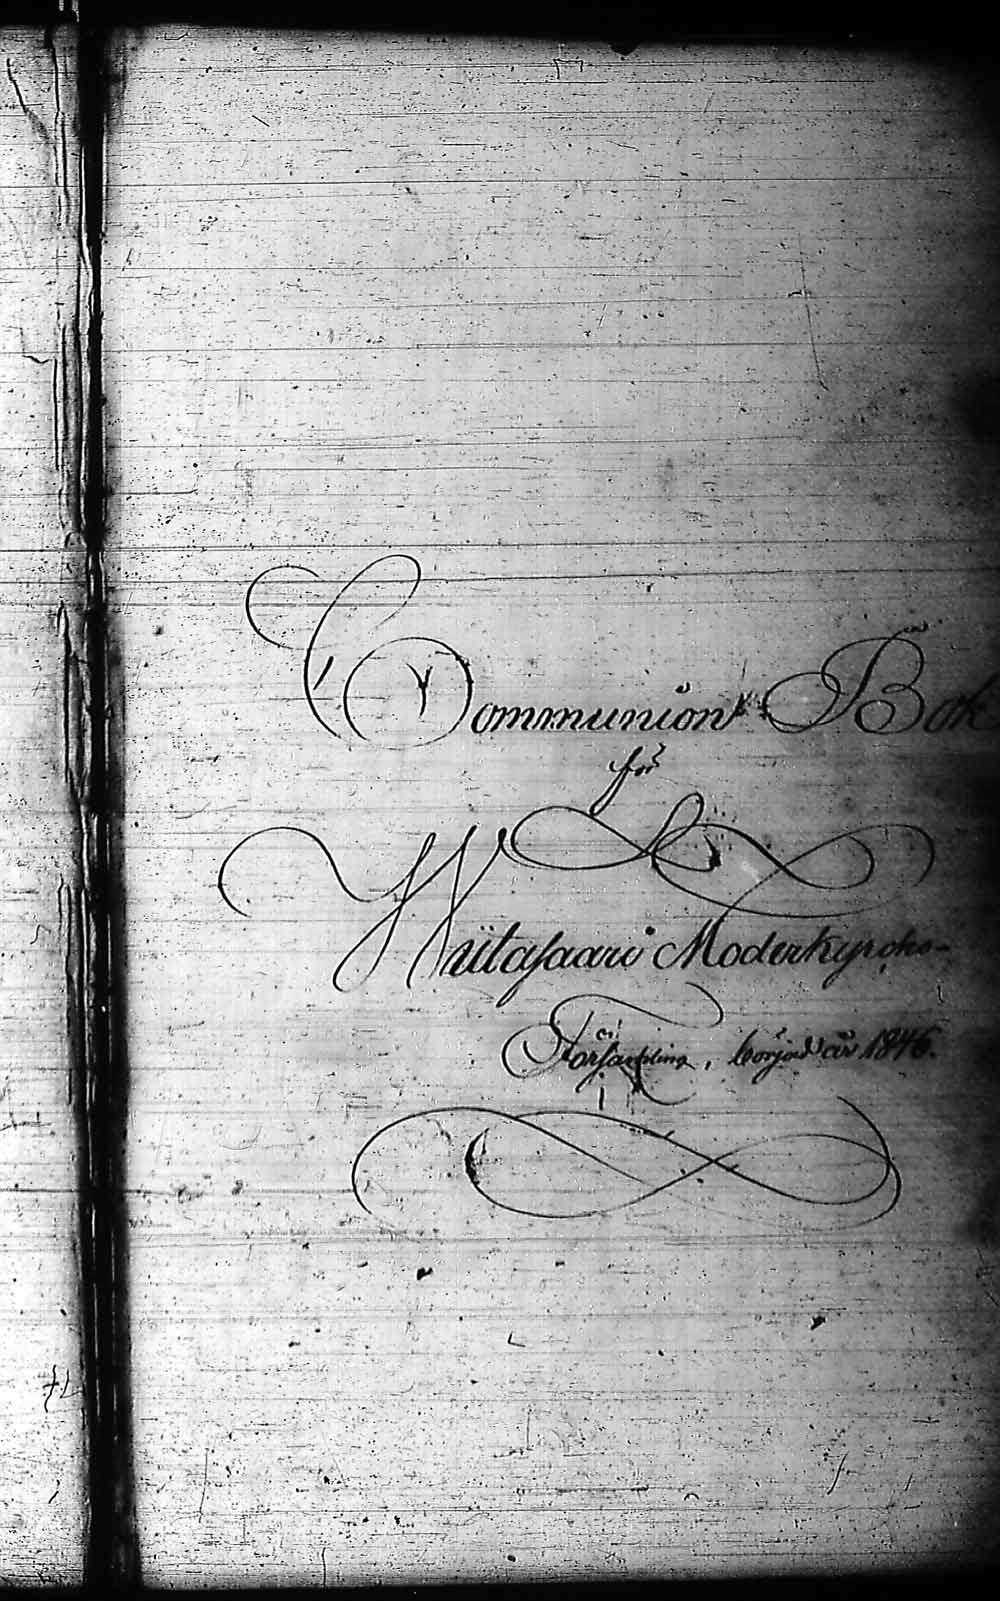 Communion Bok
för
Wiitasaari Moderkyrcko-
Församling, börjad år 1846.